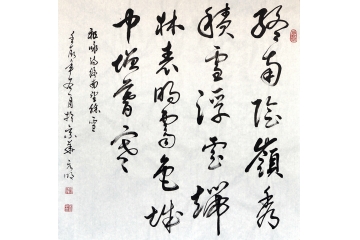 終南陰嶺秀
積雪浮雲端
林表明霽色城
中增暮寒
祖詠詩終南望餘雪
壬辰年冬月於京華